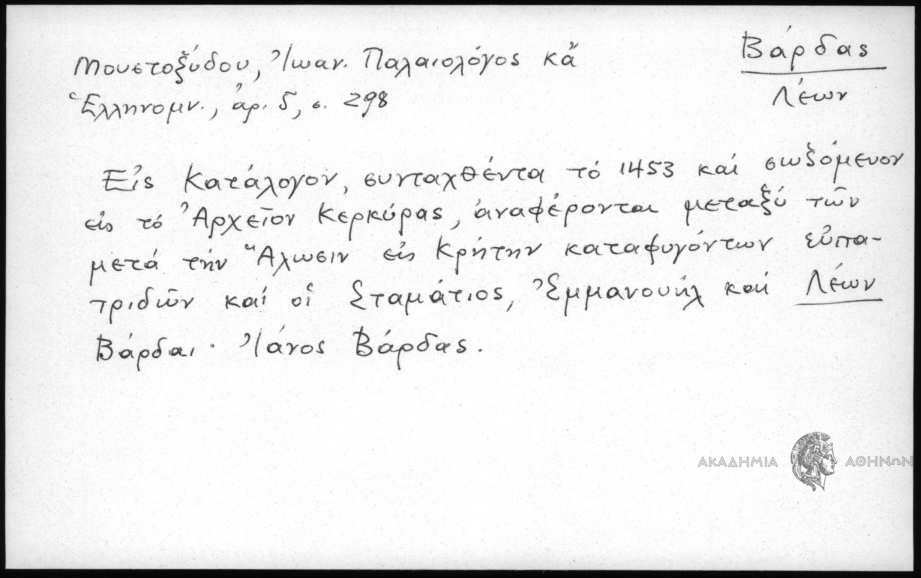 Βάρδας
Λέων
Μουστοξύδου, Ἰωαν. Παλαιολόγος κἄ
Ἑλληνομν., ἀρ. 5, σ. 298
Εἰς Κατάλογον, συνταχθέντα τό 1453 καί σωζόμενον
εἰς τό Ἀρχεῖον Κερκύρας, ἀναφέρονται μεταξύ τῶν
μετά τήν Ἅλωσιν εἰς Κρήτην καταφυγόντων εὐπα-
τριδῶν καί οἱ Σταμάτιος, Ἐμμανουήλ καί Λέων
Βάρδαι · Ἰάνος Βάρδας.
ΑΚΑΔΗΜΙΑ ΑΘΗΝΩΝ